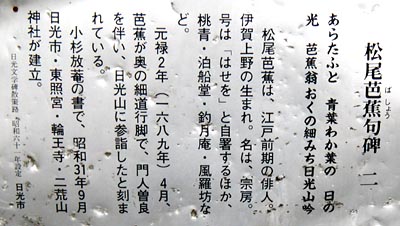 松尾芭蕉句碑 二
ばしょう
あらたふと 青葉わか葉の 日の
光 芭蕉翁おくの細みち日光山吟
松尾芭蕉は、江戸前期の俳人。
伊賀上野の生まれ。名は、宗房。
号は「はせを」と自署するほか、
桃青・泊船堂・釣月庵・風羅坊な
ど。
元禄2年（一六八九年）4月、
芭蕉が奥の細道行脚で、門人曽良
を伴い、日光山に参詣したと刻ま
れている。
小杉放菴の書で、昭和31年9月
日光市・東照宮・輪王寺・二荒山
神社が建立。
日光文学碑散策路 昭和六十一年設定 日光市